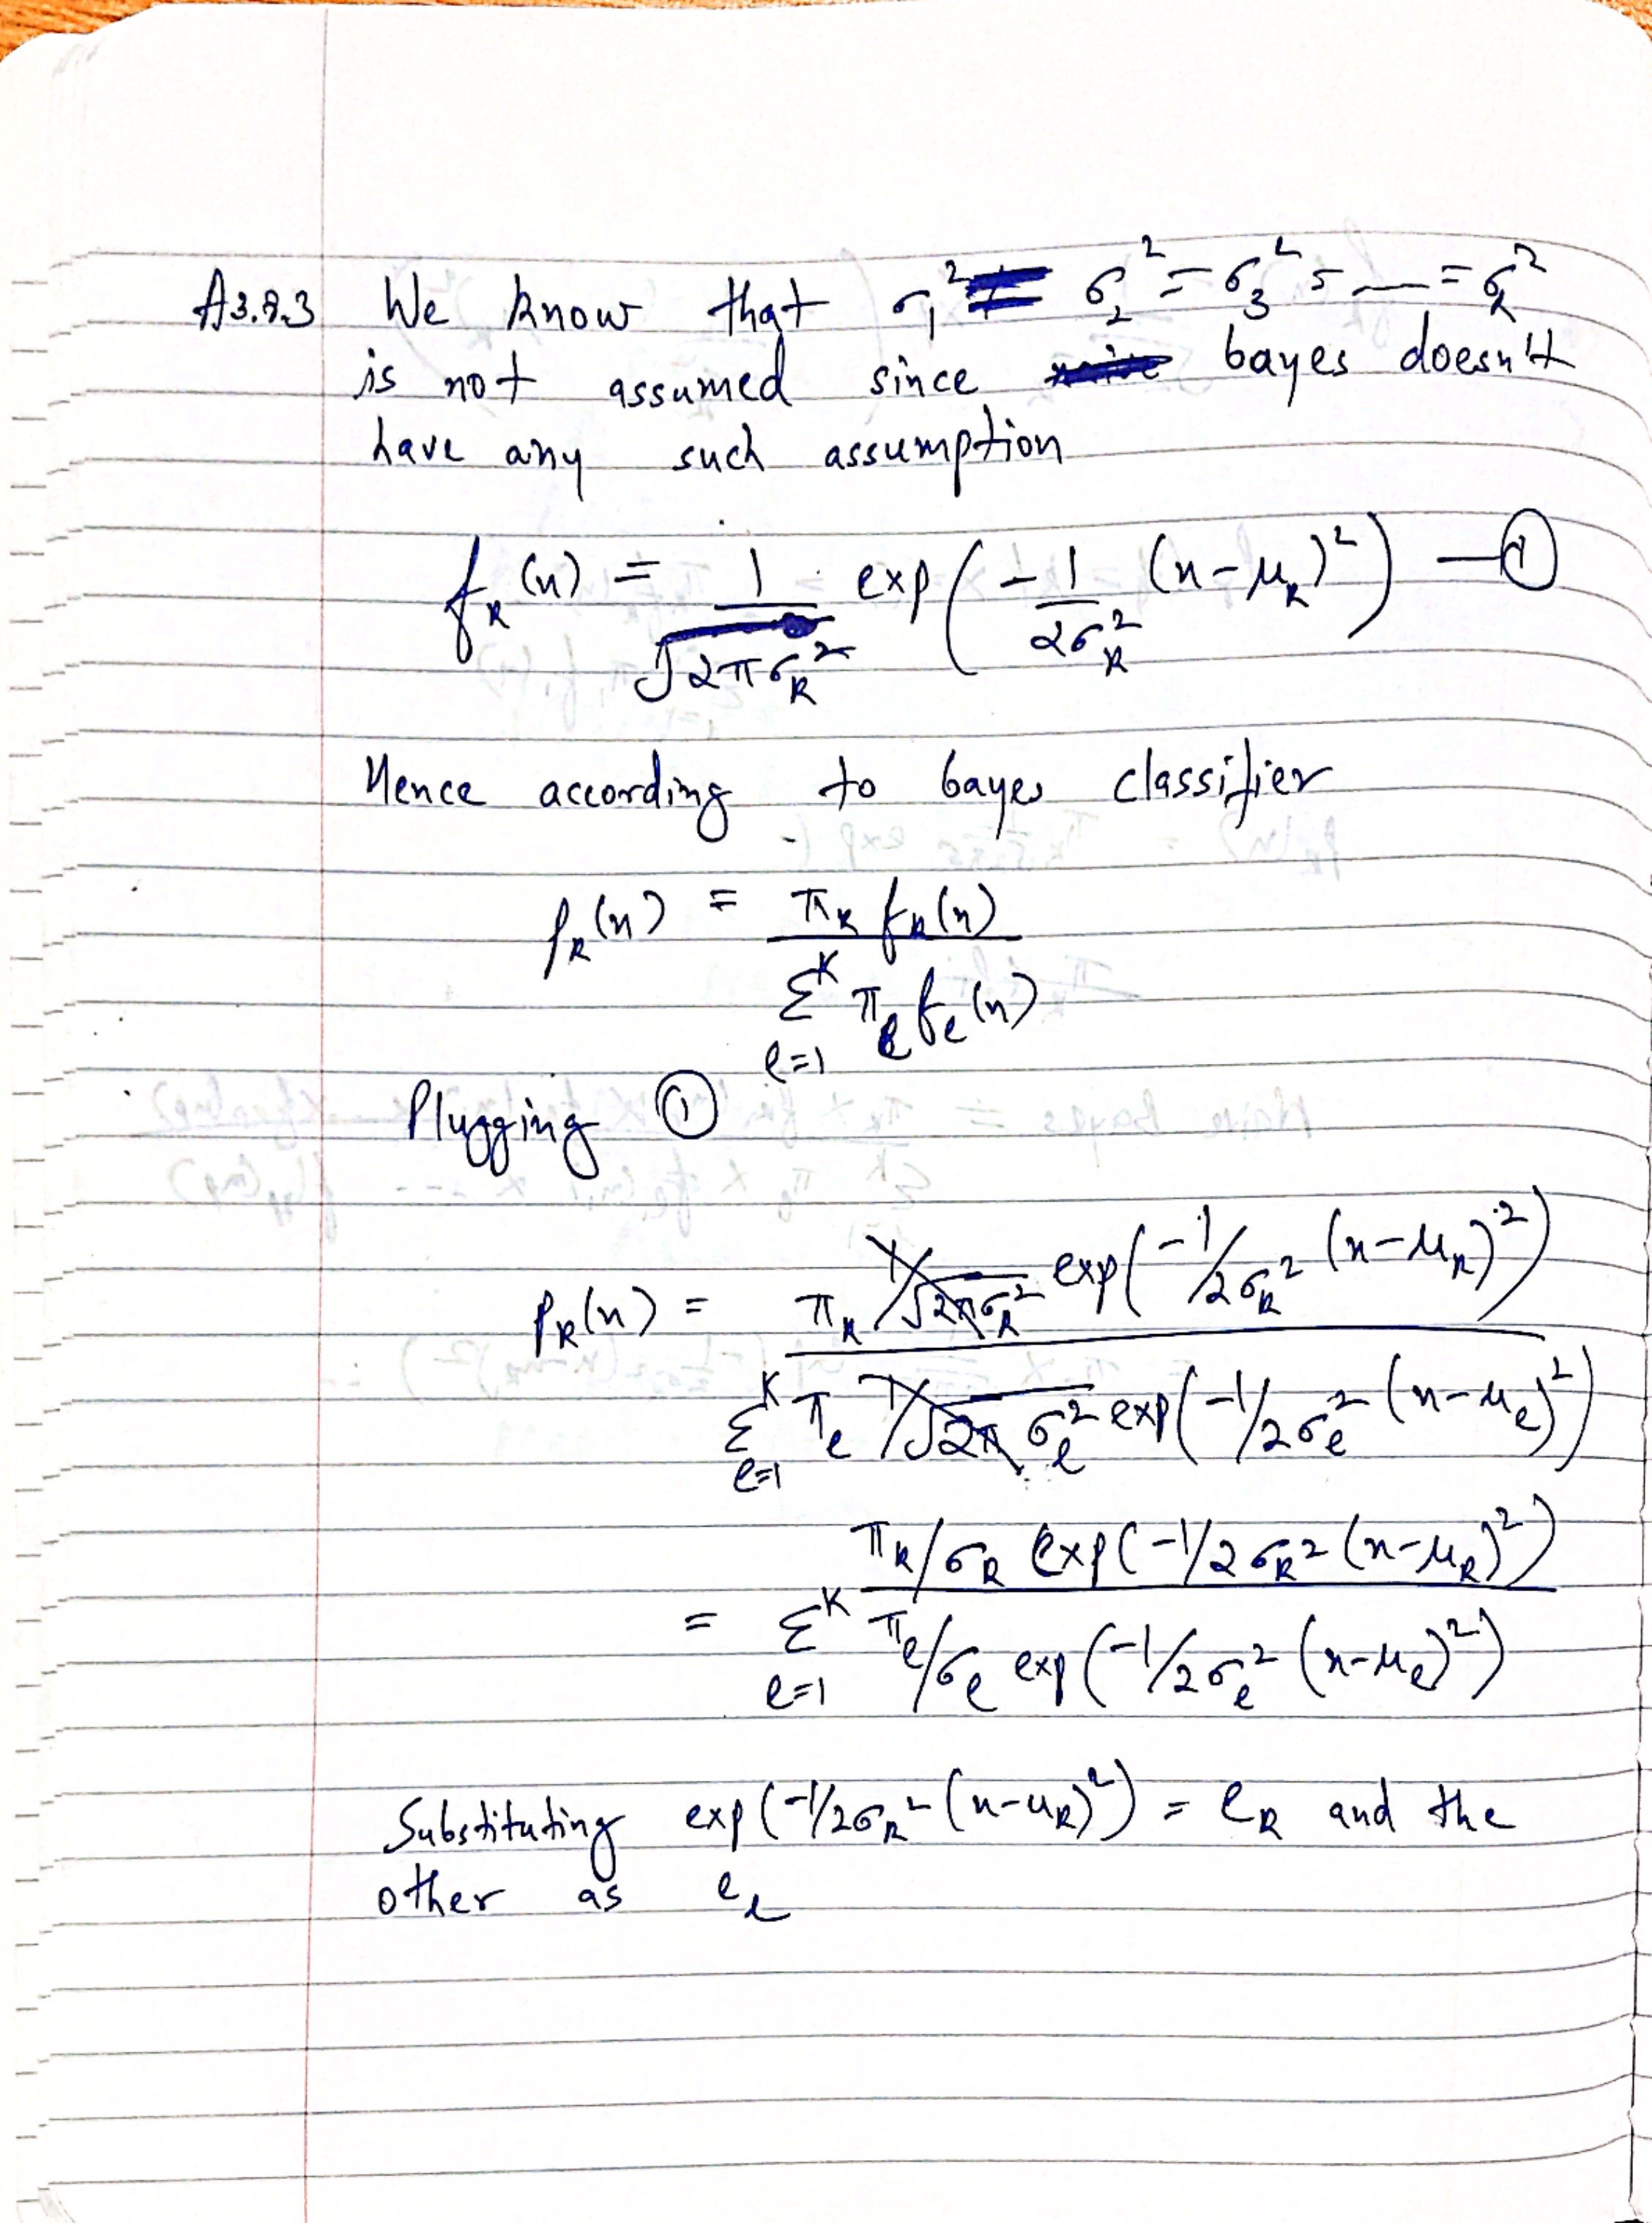 A3.9.3 We know that σ₁² = σ₂² = σ₃² = — = σₖ²
is not assumed since bayes doesn't
have any such assumption
fₖ(x) = 1/√(2πσₖ²) exp(-1/2σₖ² (x-μₖ)²) — ①
Hence according to bayes classifier
pₖ(x) = πₖ fₖ(x) / Σᴷ_{l=1} π_l f_l(x)
Plugging ①
pₖ(x) = πₖ 1/√(2πσₖ²) exp(-1/2σₖ² (x-μₖ)²) / Σᴷ_{l=1} π_l 1/√(2π σ_l²) exp(-1/2σ_l² (x-μ_l)²)
= πₖ/σₖ exp(-1/2σₖ² (x-μₖ)²) / Σᴷ_{l=1} π_l/σ_l exp(-1/2σ_l² (x-μ_l)²)
Substituting exp(-1/2σₖ² (x-μₖ)²) = eₖ and the
other as e_l